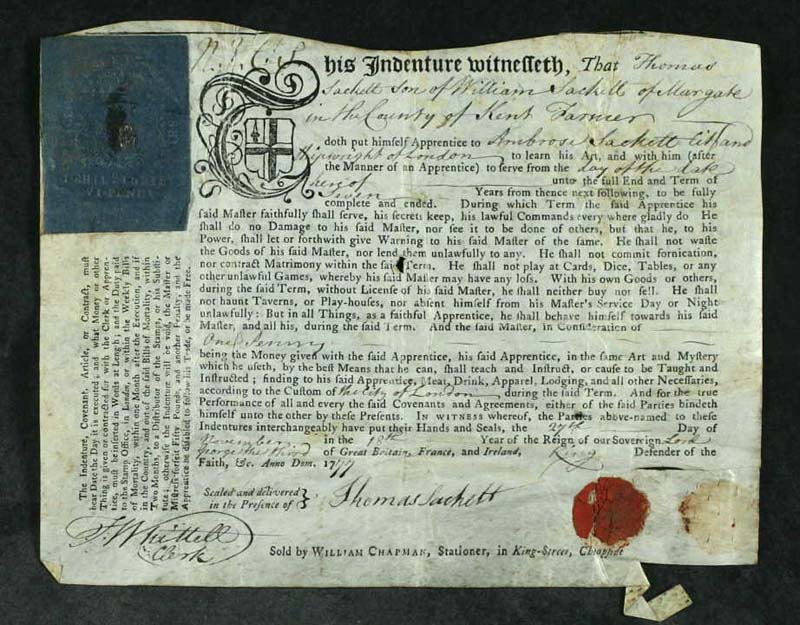 This Indenture witnesseth, That Thomas
Sackett Son of William Sackett of Margate
in the County of Kent Farmer
doth put himself Apprentice to Ambrose Sackett Cit and
Shipwright of London to learn his Art, and with him (after
the Manner of an Apprentice) to serve from the day of the date
hereof unto the full End and Term of
Seven Years from thence next following, to be fully
complete and ended. During which Term the said Apprentice his
said Master faithfully shall serve, his secrets keep, his lawful Commands every where gladly do He
shall do no Damage to his said Master, nor see it to be done of others, but that he, to his
Power, shall let or forthwith give Warning to his said Master of the same. He shall not waste
the Goods of his said Master, nor lend them unlawfully to any. He shall not commit fornication,
nor contract Matrimony within the said Term. He shall not play at Cards, Dice, Tables, or any
other unlawful Games, whereby his said Master may have any loss. With his own Goods or others,
during the said Term, without License of his said Master, he shall neither buy nor sell. He shall
not haunt Taverns, or Play-houses, nor absent himself from his Master's Service Day or Night
unlawfully: But in all Things, as a faithful Apprentice, he shall behave himself towards his said
Master, and all his, during the said Term. And the said Master, in Consideration of
One Penny
being the Money given with the said Apprentice, his said Apprentice, in the same Art and Mystery
which he useth, by the best Means that he can, shall teach and Instruct, or cause to be Taught and
Instructed; finding to his said Apprentice, Meat, Drink, Apparel, Lodging, and all other Necessaries,
according to the Custom of the City of London during the said Term. And for the true
Performance of all and every the said Covenants and Agreements, either of the said Parties bindeth
himself unto the other by these Presents. IN WITNESS whereof, the Parties above-named to these
Indentures interchangeably have put their Hands and Seals, the 27th Day of
November in the 18th Year of the Reign of our Sovereign Lord
George the Third of Great Britain, France, and Ireland, King Defender of the
Faith, &c. Anno Dom. 1777
Sealed and delivered
in the Presence of
Thomas Sackett
Clerk
Sold by WILLIAM CHAPMAN, Stationer, in King-Street, Cheapside
The Indenture, Covenant, Article, or Contract, must
bear Date the Day it is executed; and what Money or other
Thing is given or contracted for with the Clerk or Apprentice,
must be inserted in Words at Length; and the Duty paid
to the Stamp Office, in London, or within the Weekly Bills
of Mortality, within one Month after the Execution, and if
in the Country, and out of the said Bills of Mortality, within
Two Months, to a Distributor of the Stamps, or his Substitute;
otherwise the Indenture will be void, the Master or
Mistress forfeit Fifty Pounds, and another Penalty, and the
Apprentice be disabled to follow his Trade, or be made Free.